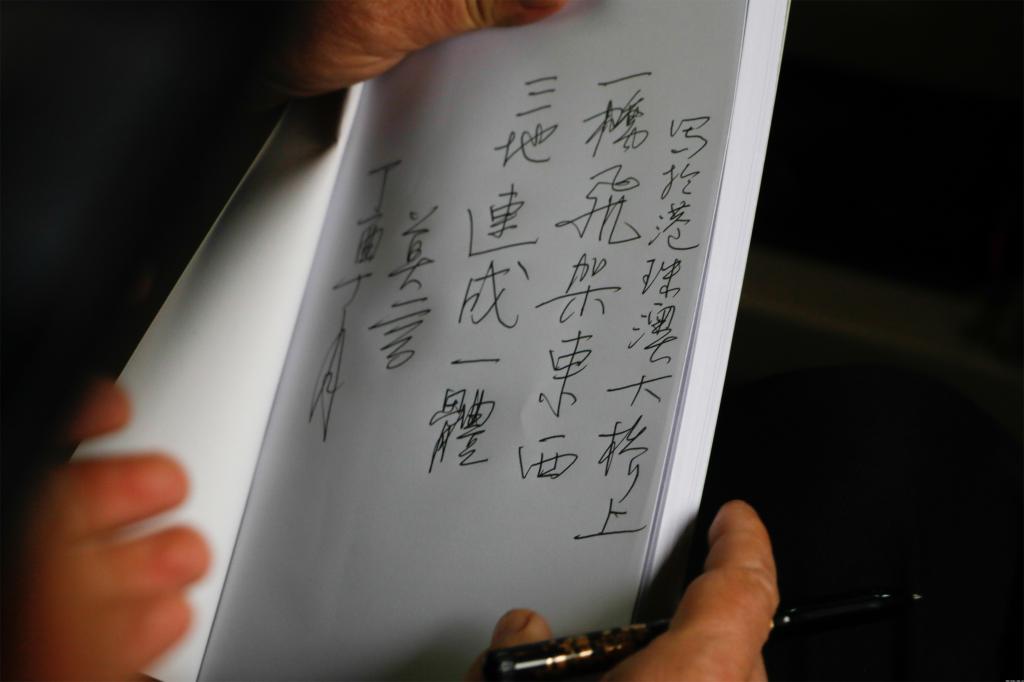 写於港珠澳大桥上
一橋飛架東西
三地連成一體
莫言
丁酉丁月